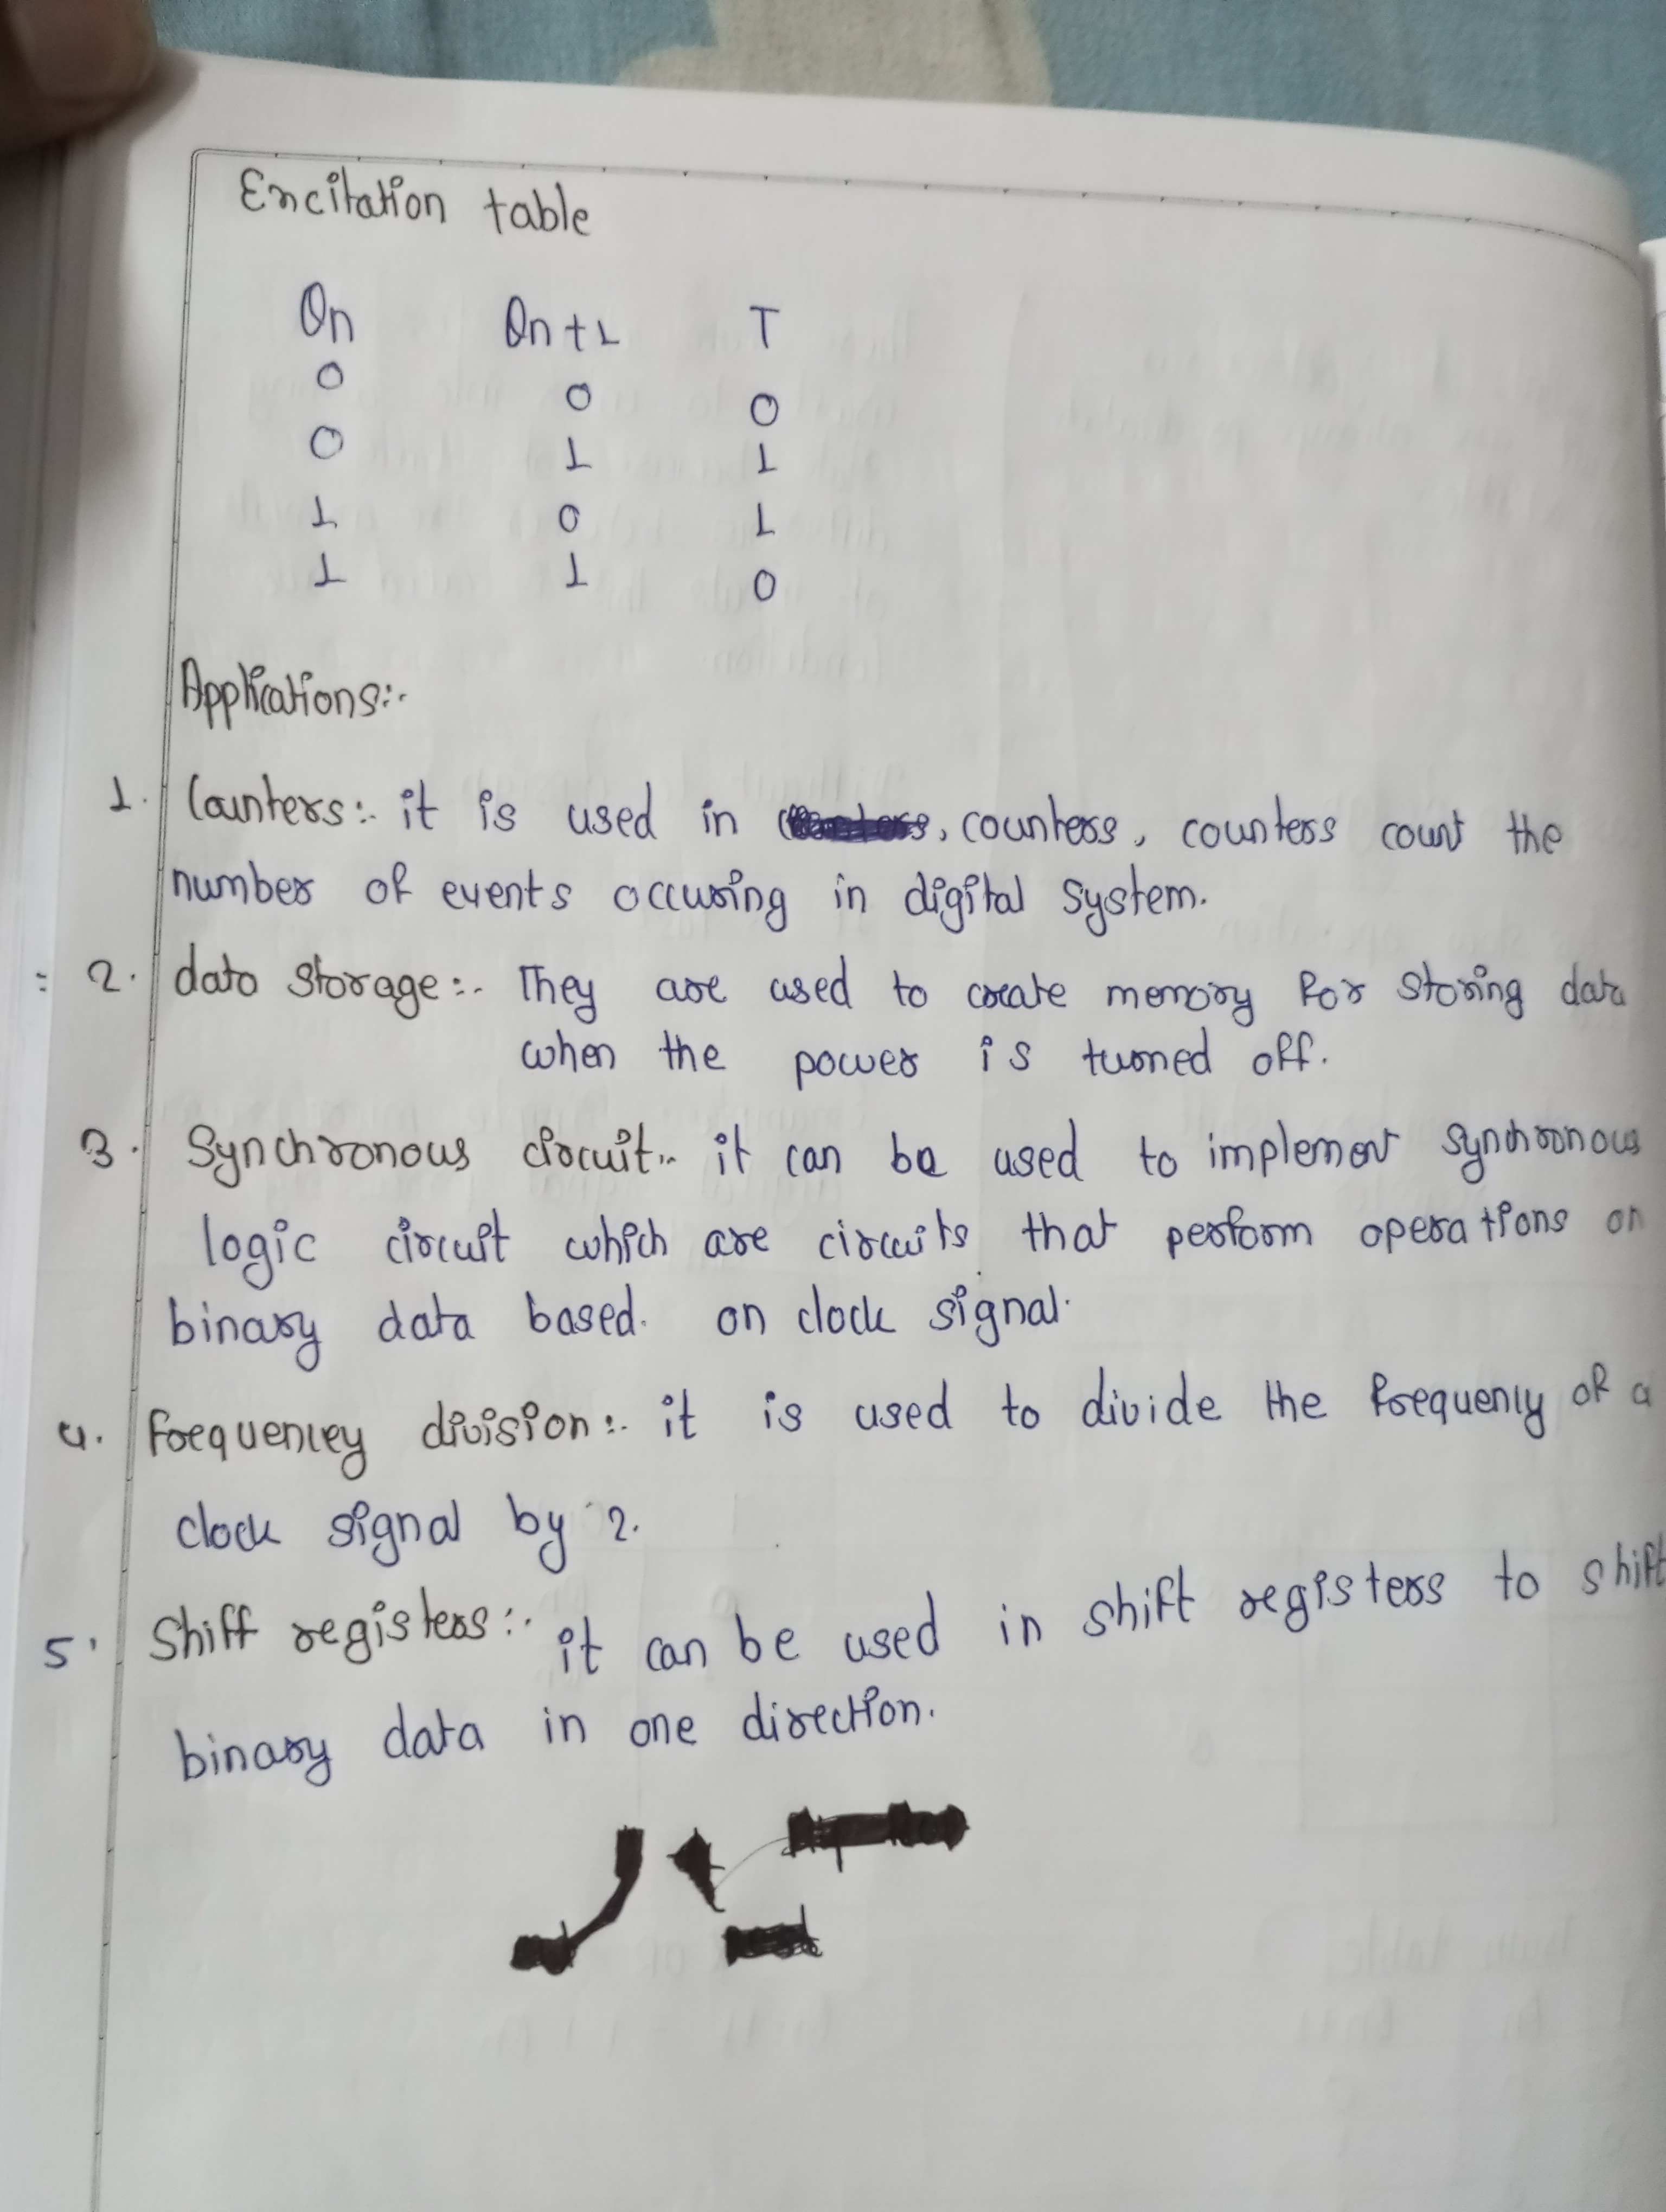 Excitation table
Qn Qn+1 T
0 0 0
0 1 1
1 0 1
1 1 0
Applications:-
1. Counters:- it is used in , counters, counters count the
number of events occuring in digital system.
= 2. data storage:- They are used to create memory for storing data
when the power is turned off.
3. Synchronous circuit:- it can be used to implement synchronous
logic circuit which are circuits that perform operations on
binary data based. on clock signal.
4. Frequencey division:- it is used to divide the frequency of a
clock signal by 2.
5. Shiff registers:- it can be used in shift registers to shift
binary data in one direction.